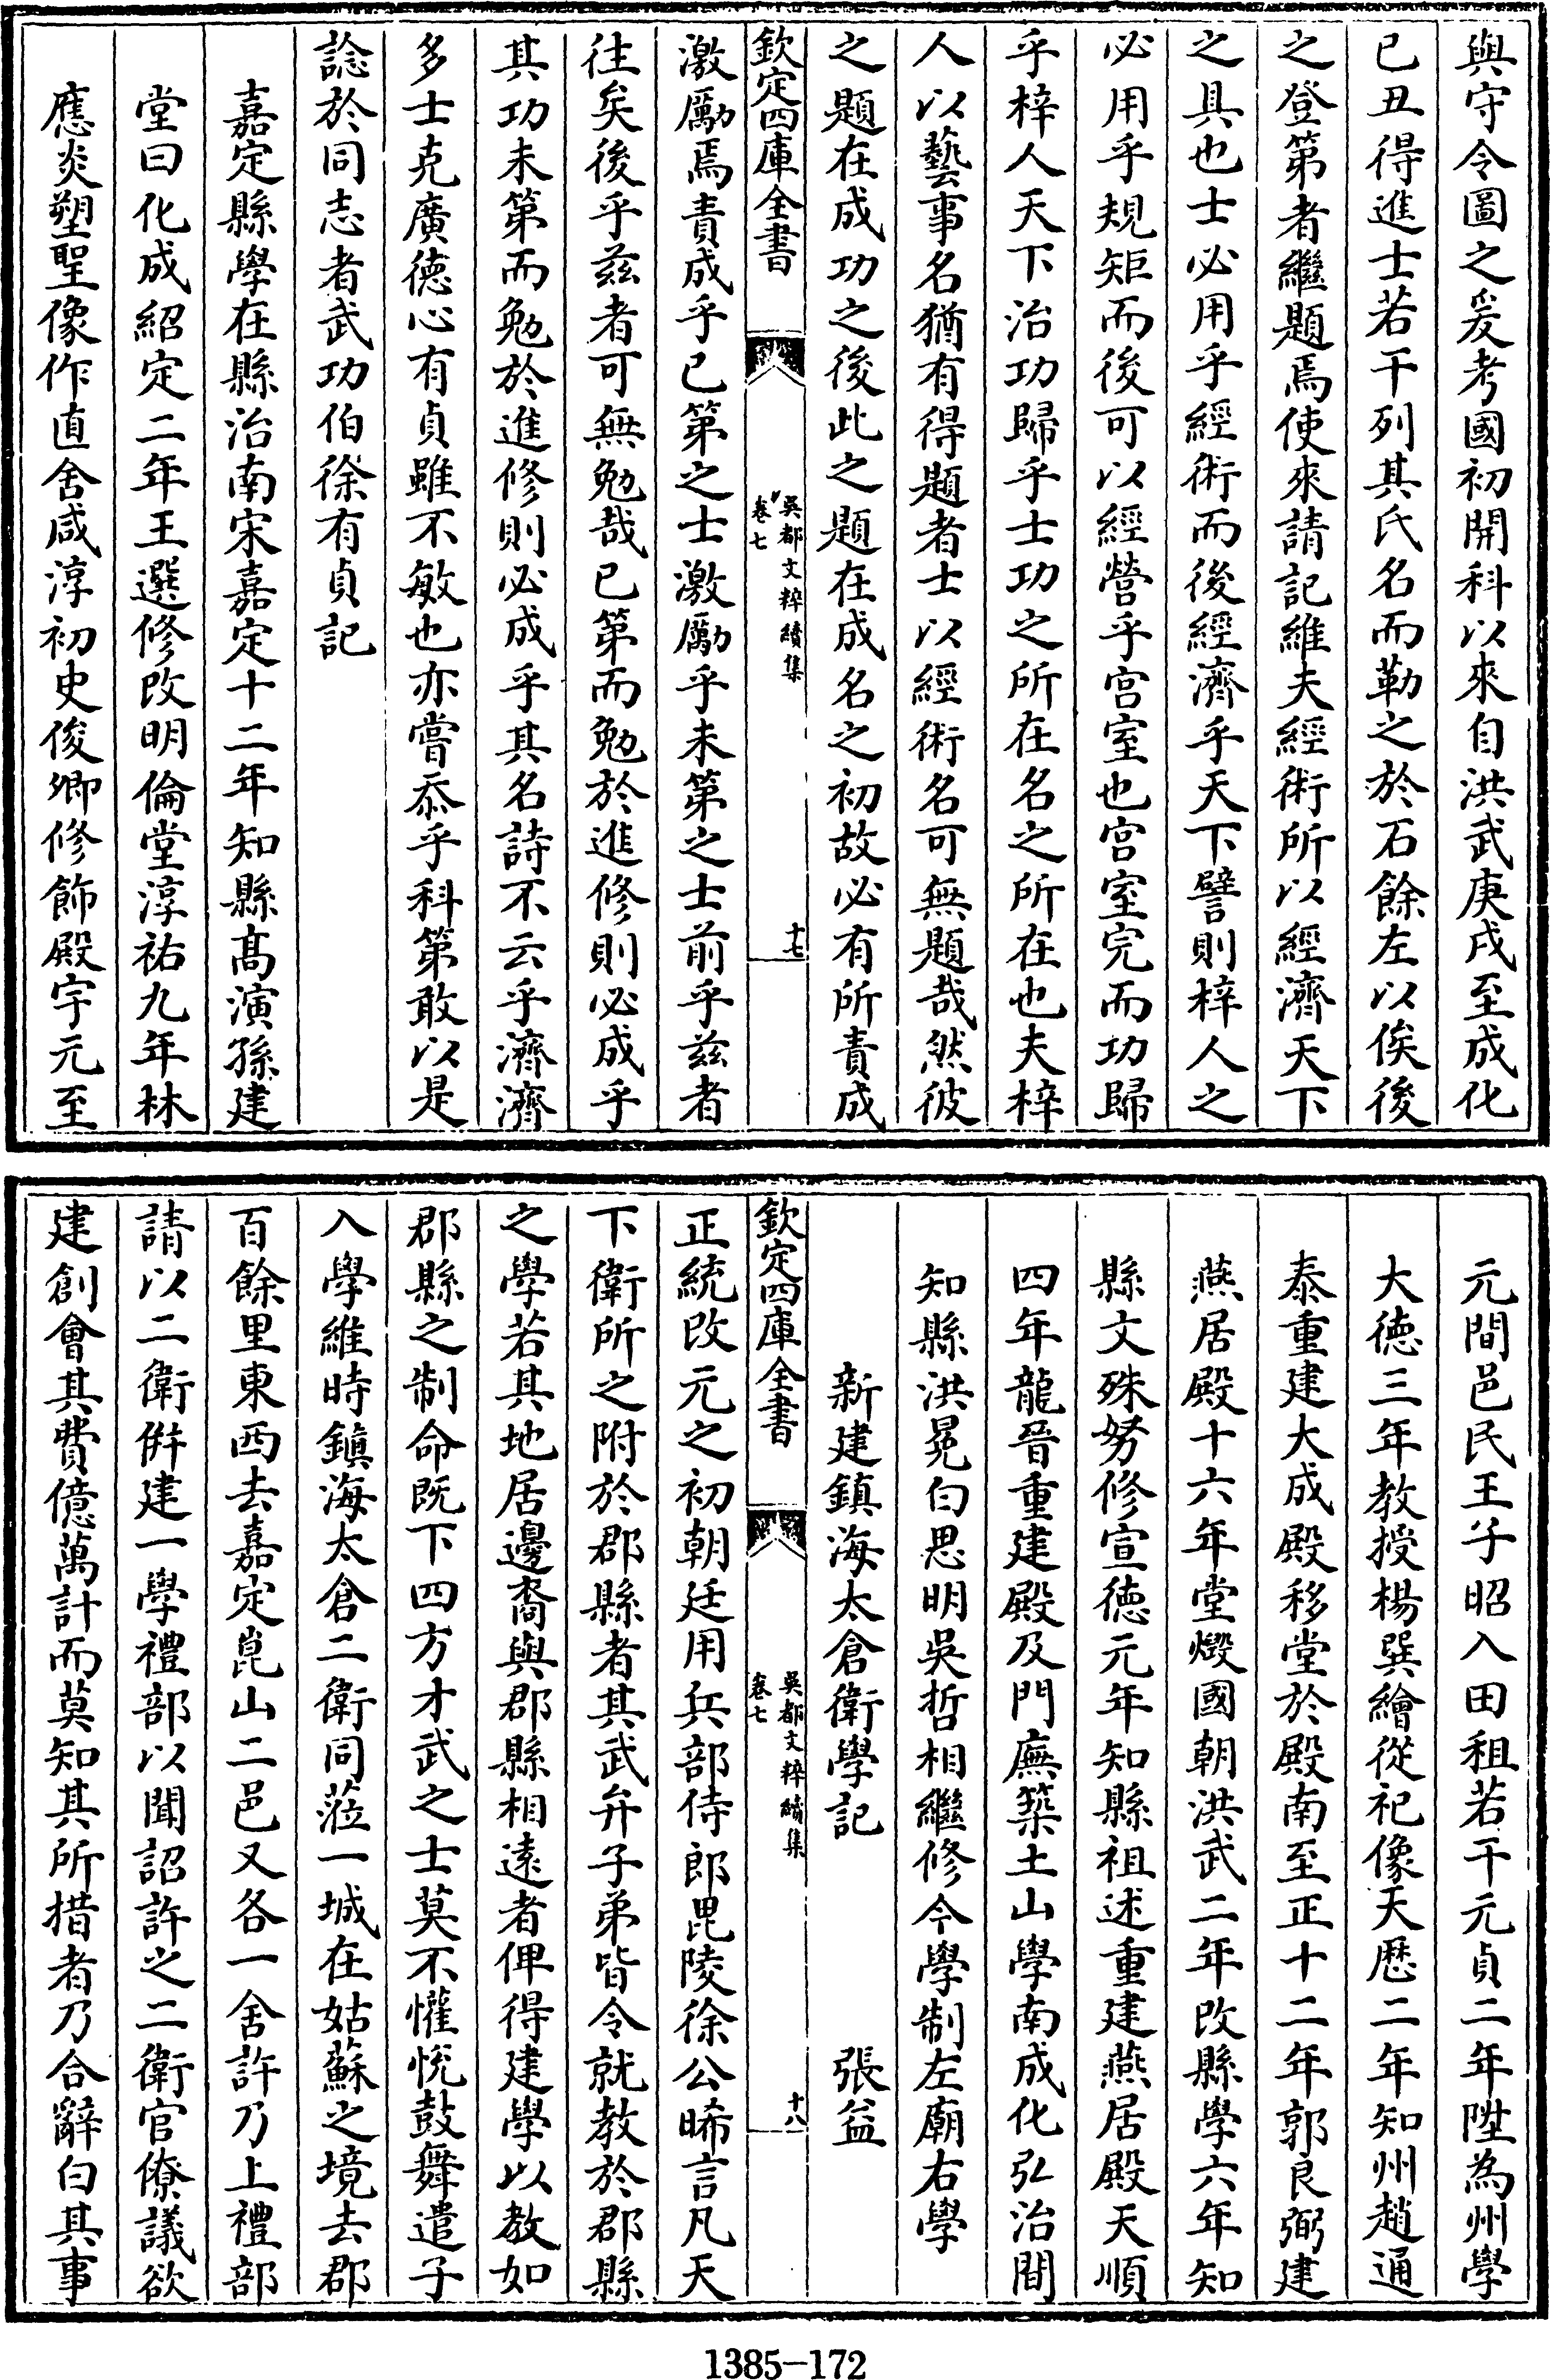 與守令圖之爰考國初開科以來自洪武庚戌至成化
已丑得進士若干列其氏名而勒之於石餘左以俟後
之登第者繼題焉使來請記維夫經術所以經濟天下
之具也士必用乎經術而後經濟乎天下譬則梓人之
必用乎規矩而後可以經營乎宫室也宫室完而功歸
乎梓人天下治功歸乎士功之所在名之所在也夫梓
人以藝事名猶有得題者士以經術名可無題哉然彼
之題在成功之後此之題在成名之初故必有所責成
欽定四庫全書
吳都文粹續集
卷七
十七
激勵焉責成乎已第之士激勵乎未第之士前乎兹者
往矣後乎兹者可無勉哉已第而勉於進修則必成乎
其功未第而勉於進修則必成乎其名詩不云乎濟濟
多士克廣德心有貞雖不敏也亦嘗忝乎科第敢以是
諗於同志者武功伯徐有貞記
嘉定縣學在縣治南宋嘉定十二年知縣髙演孫建
堂曰化成紹定二年王選修改明倫堂淳祐九年林
應炎塑聖像作直舍咸淳初史俊卿修飾殿宇元至
元間邑民王子昭入田租若干元貞二年陞為州學
大德三年教授楊巽繪從祀像天厯二年知州趙通
泰重建大成殿移堂於殿南至正十二年郭良弼建
燕居殿十六年堂燬國朝洪武二年改縣學六年知
縣文殊努修宣徳元年知縣祖述重建燕居殿天順
四年龍晉重建殿及門廡築土山學南成化弘治間
知縣洪冕白思明吳哲相繼修今學制左廟右學
新建鎮海太倉衛學記　張益
欽定四庫全書
吳都文粹續集
卷七
十八
正統改元之初朝廷用兵部侍郎毘陵徐公晞言凡天
下衛所之附於郡縣者其武弁子弟皆令就教於郡縣
之學若其地居邊裔與郡縣相遠者俾得建學以教如
郡縣之制命既下四方才武之士莫不懽悅鼓舞遣子
入學維時鎮海太倉二衛同蒞一城在姑蘇之境去郡
百餘里東西去嘉定崑山二邑又各一舍許乃上禮部
請以二衛併建一學禮部以聞詔許之二衛官僚議欲
建創會其費億萬計而莫知其所措者乃合辭白其事
1385-172